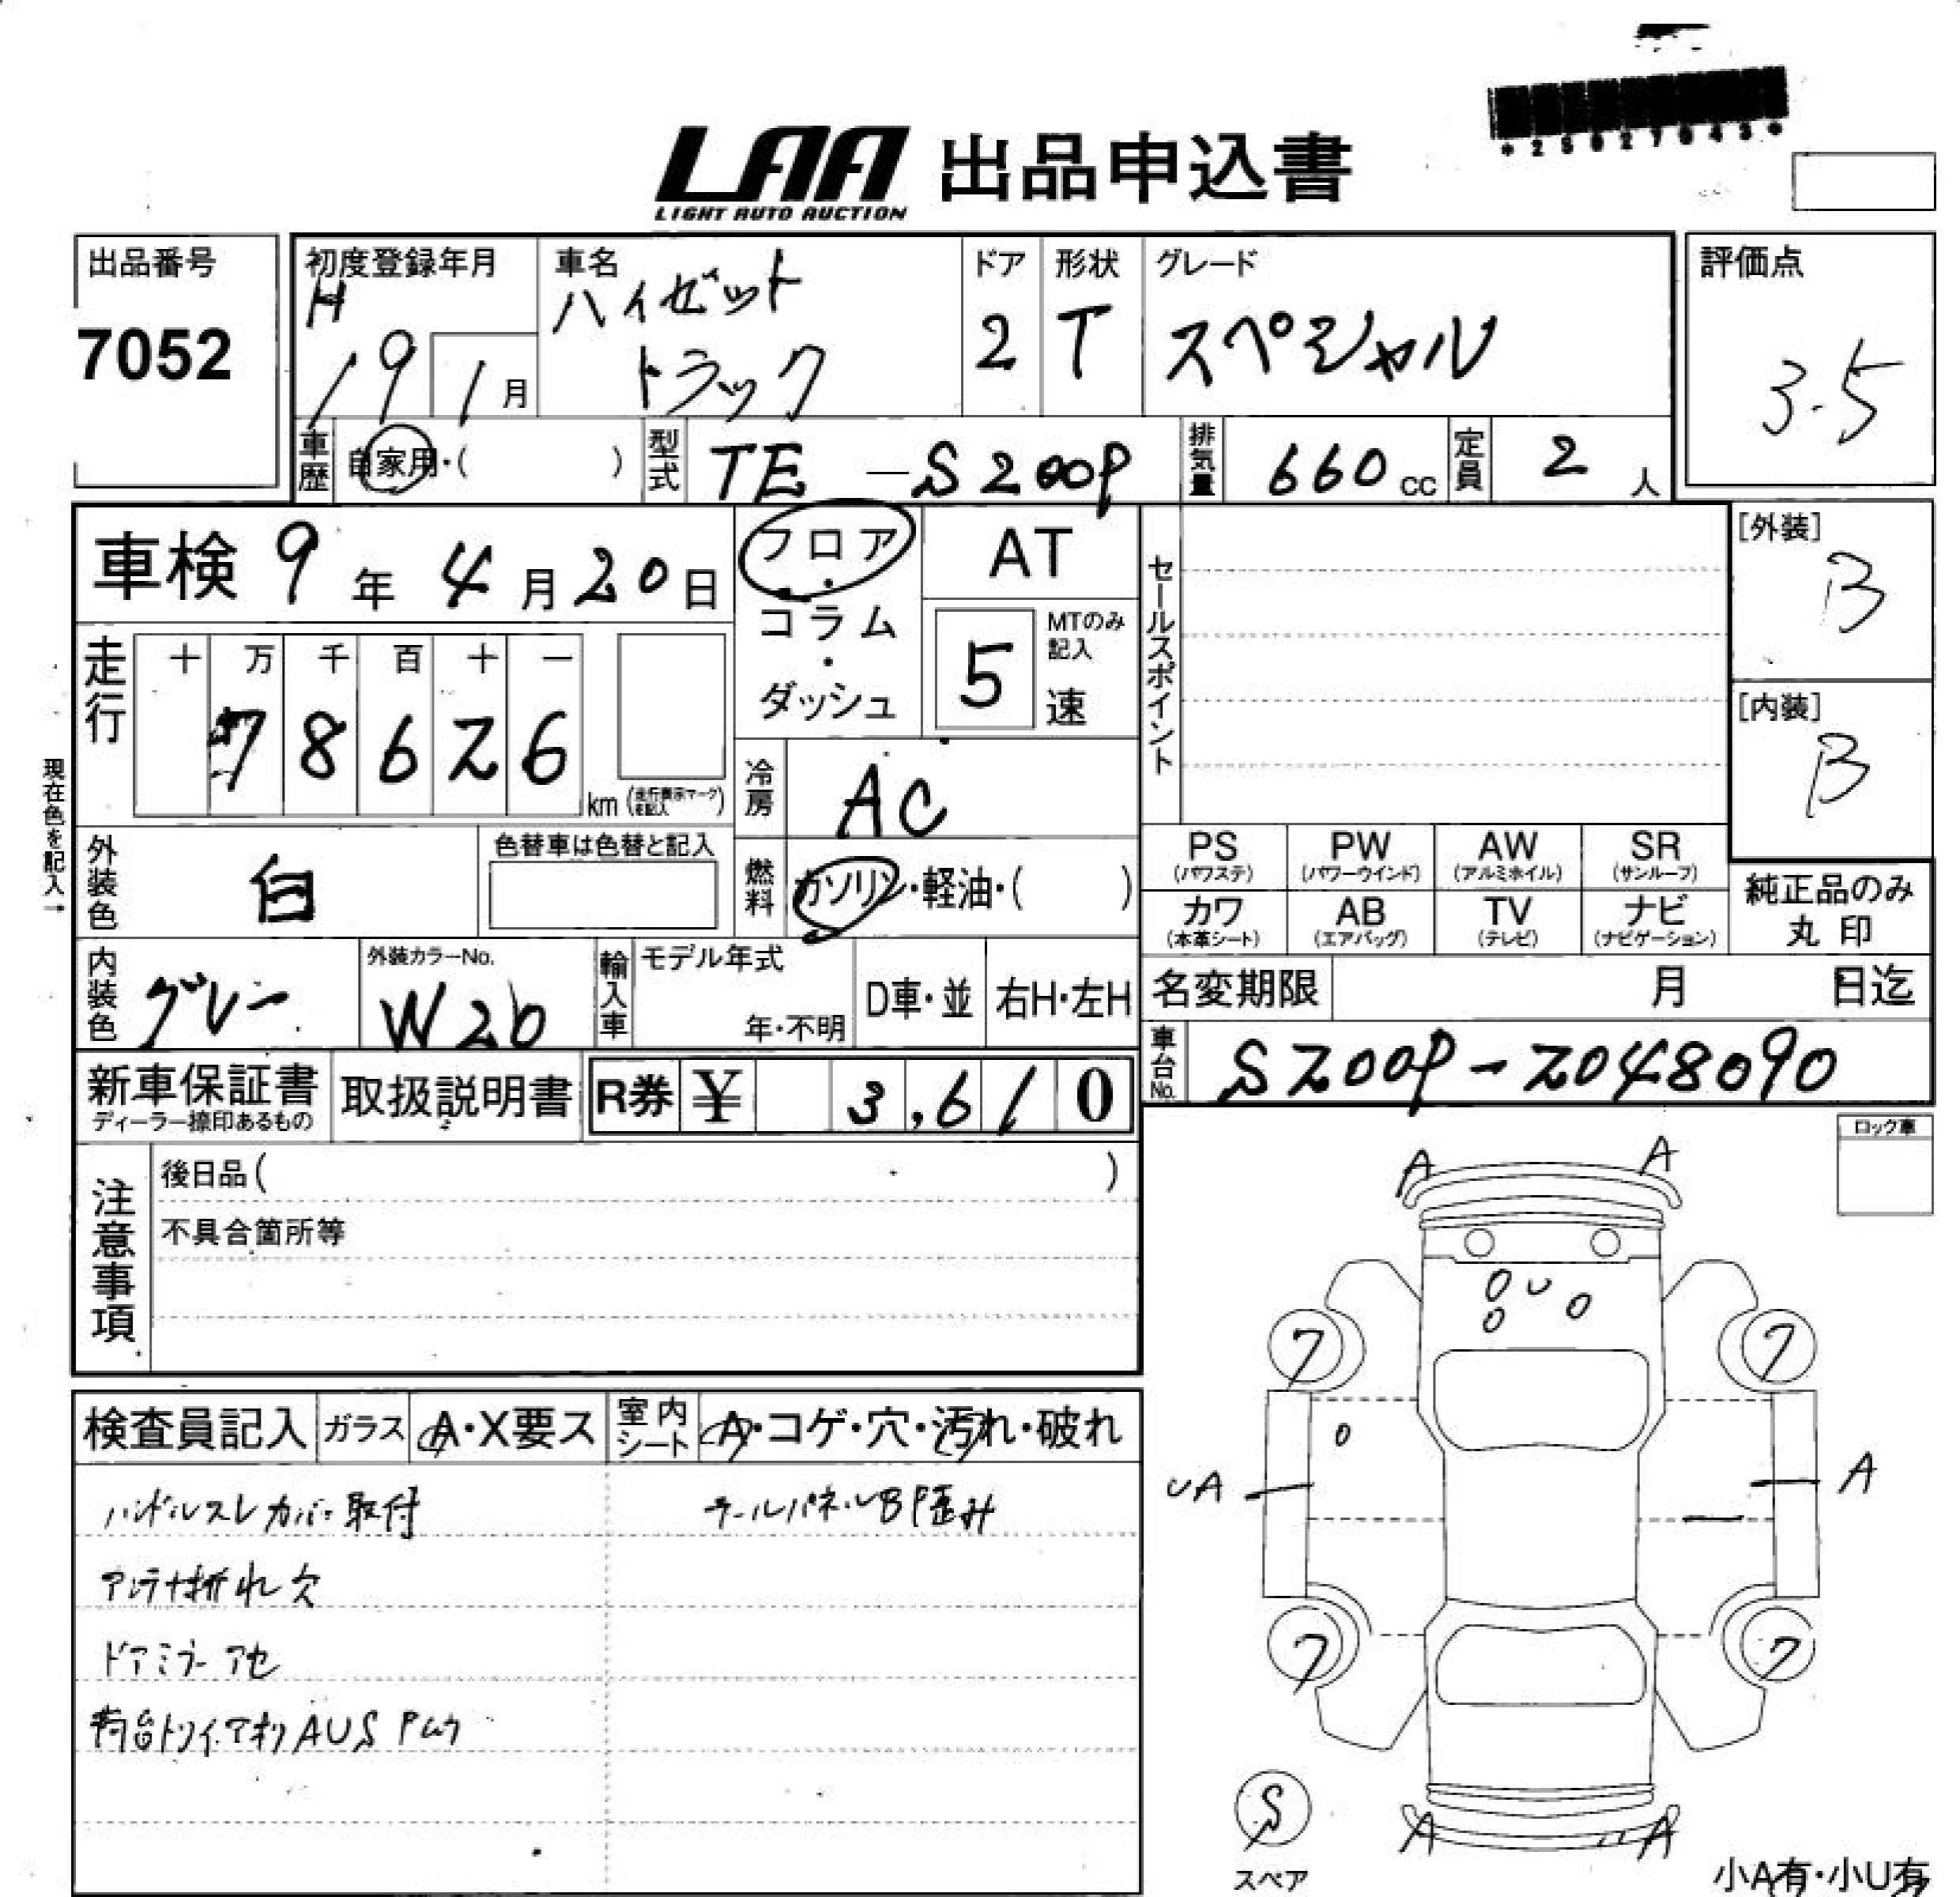 *25027043*
LAA 出品申込書
LIGHT AUTO AUCTION
出品番号
7052
初度登録年月
H
19 1月
車名
ハイゼット
トラック
ドア
2
形状
T
グレード
スペシャル
評価点
3.5
車歴 自家用・( )
型式 TE-S200P
排気量 660cc
定員 2人
車検 9年4月20日
フロア
・
コラム
・
ダッシュ
AT
MTのみ
記入
5速
セールスポイント
[外装]
B
[内装]
B
走行
十 万 千 百 十 一
7 8 6 2 6
km
現在色を記入→
冷房 AC
外装色 白
色替車は色替と記入
燃料 ガソリン・軽油・( )
PS PW AW SR
(パワステ) (パワーウインド) (アルミホイル) (サンルーフ)
カワ AB TV ナビ
(本革シート) (エアバッグ) (テレビ) (ナビゲーション)
純正品のみ
丸印
内装色 グレー
外装カラーNo.
W26
輸入車
モデル年式
年・不明
D車・並
右H・左H
名変期限 月 日迄
車台No. S200P-2048090
新車保証書
ディーラー捺印あるもの
取扱説明書
R券 ¥ 3,610
ロック車
注意事項
後日品( )
不具合箇所等
検査員記入
ガラス A・X要ス
室内シート A・コゲ・穴・汚れ・破れ
ハンドルスレ カバー取付
テールパネルBP歪み
アンテナ折れ欠
ドアミラーアセ
荷台トリイアオリAUS
A A
7 7
UA A
7 7
S
スペア
A A
小A有・小U有